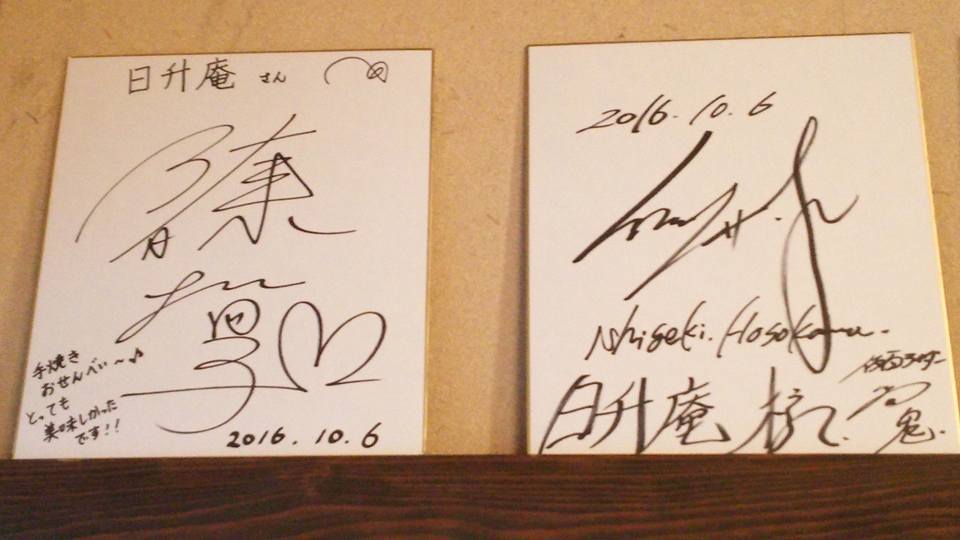 日升庵 さん
手焼き
おせんべい〜♪
とっても
美味しかった
です!!
2016.10.6
2016.10.6
Shigeki.Hosokawa.
仮面ライダー
日升庵 様へ.
響鬼.